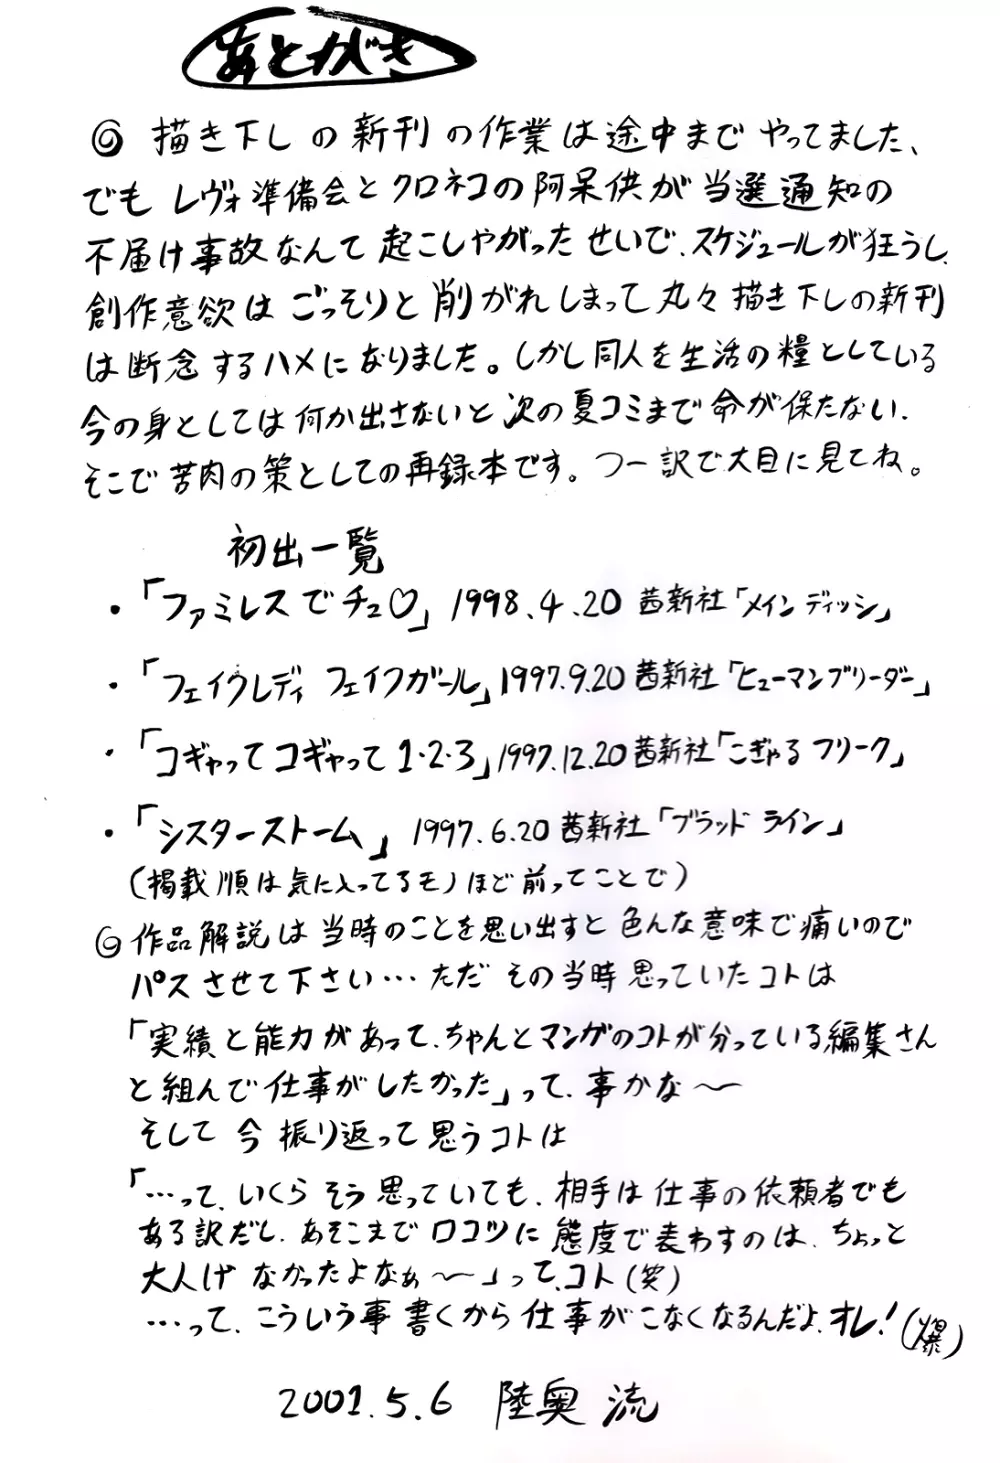 あとがき
◎ 描き下しの新刊の作業は途中までやってました、
でもレヴォ準備会とクロネコの阿呆供が当選通知の
不届け事故なんて起こしやがったせいで、スケジュールが狂うし、
創作意欲はごっそりと削がれしまって丸々描き下しの新刊
は断念するハメになりました。しかし同人を生活の糧としている
今の身としては何か出さないと次の夏コミまで命が保たない、
そこで苦肉の策としての再録本です。つー訳で大目に見てね。
初出一覧
・「ファミレスでチュ♡」1998.4.20 茜新社「メインディッシ」
・「フェイクレディ フェイクガール」1997.9.20 茜新社「ヒューマンブリーダー」
・「コギャってコギャって1・2・3」1997.12.20 茜新社「こぎゃるフリーク」
・「シスターストーム」1997.6.20 茜新社「ブラッドライン」
(掲載順は気に入ってるモノほど前ってことで)
◎ 作品解説は当時のことを思い出すと色んな意味で痛いので
パスさせて下さい…ただその当時思っていたコトは
「実績と能力があって、ちゃんとマンガのコトが分っている編集さん
と組んで仕事がしたかった」って、事かな〜
そして今振り返って思うコトは
「…って、いくらそう思っていても、相手は仕事の依頼者でも
ある訳だし、あそこまでロコツに態度で表わすのは、ちょっと
大人げなかったよなぁ〜」って、コト(笑)
…って、こういう事書くから仕事がこなくなるんだよ、オレ!(爆)
2001.5.6 陸奥 流